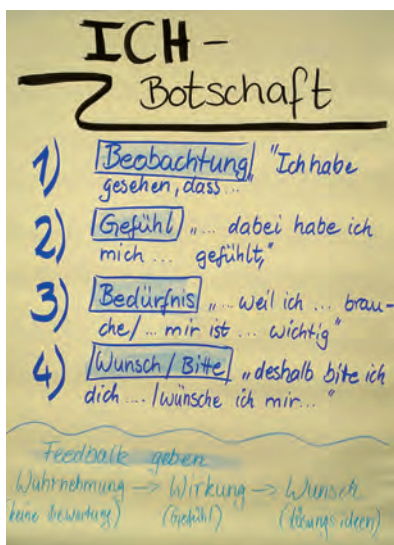 ICH -
Botschaft
1) Beobachtung "Ich habe
gesehen, dass..."
2) Gefühl „... dabei habe ich
mich ... gefühlt,"
3) Bedürfnis „... weil ich ... brau-
che/... mir ist ... wichtig"
4) Wunsch / Bitte „deshalb bitte ich
dich .... /wünsche ich mir..."
Feedback geben
Wahrnehmung -> Wirkung -> Wunsch
(keine Bewertung) (Gefühl) (Lösungsideen)